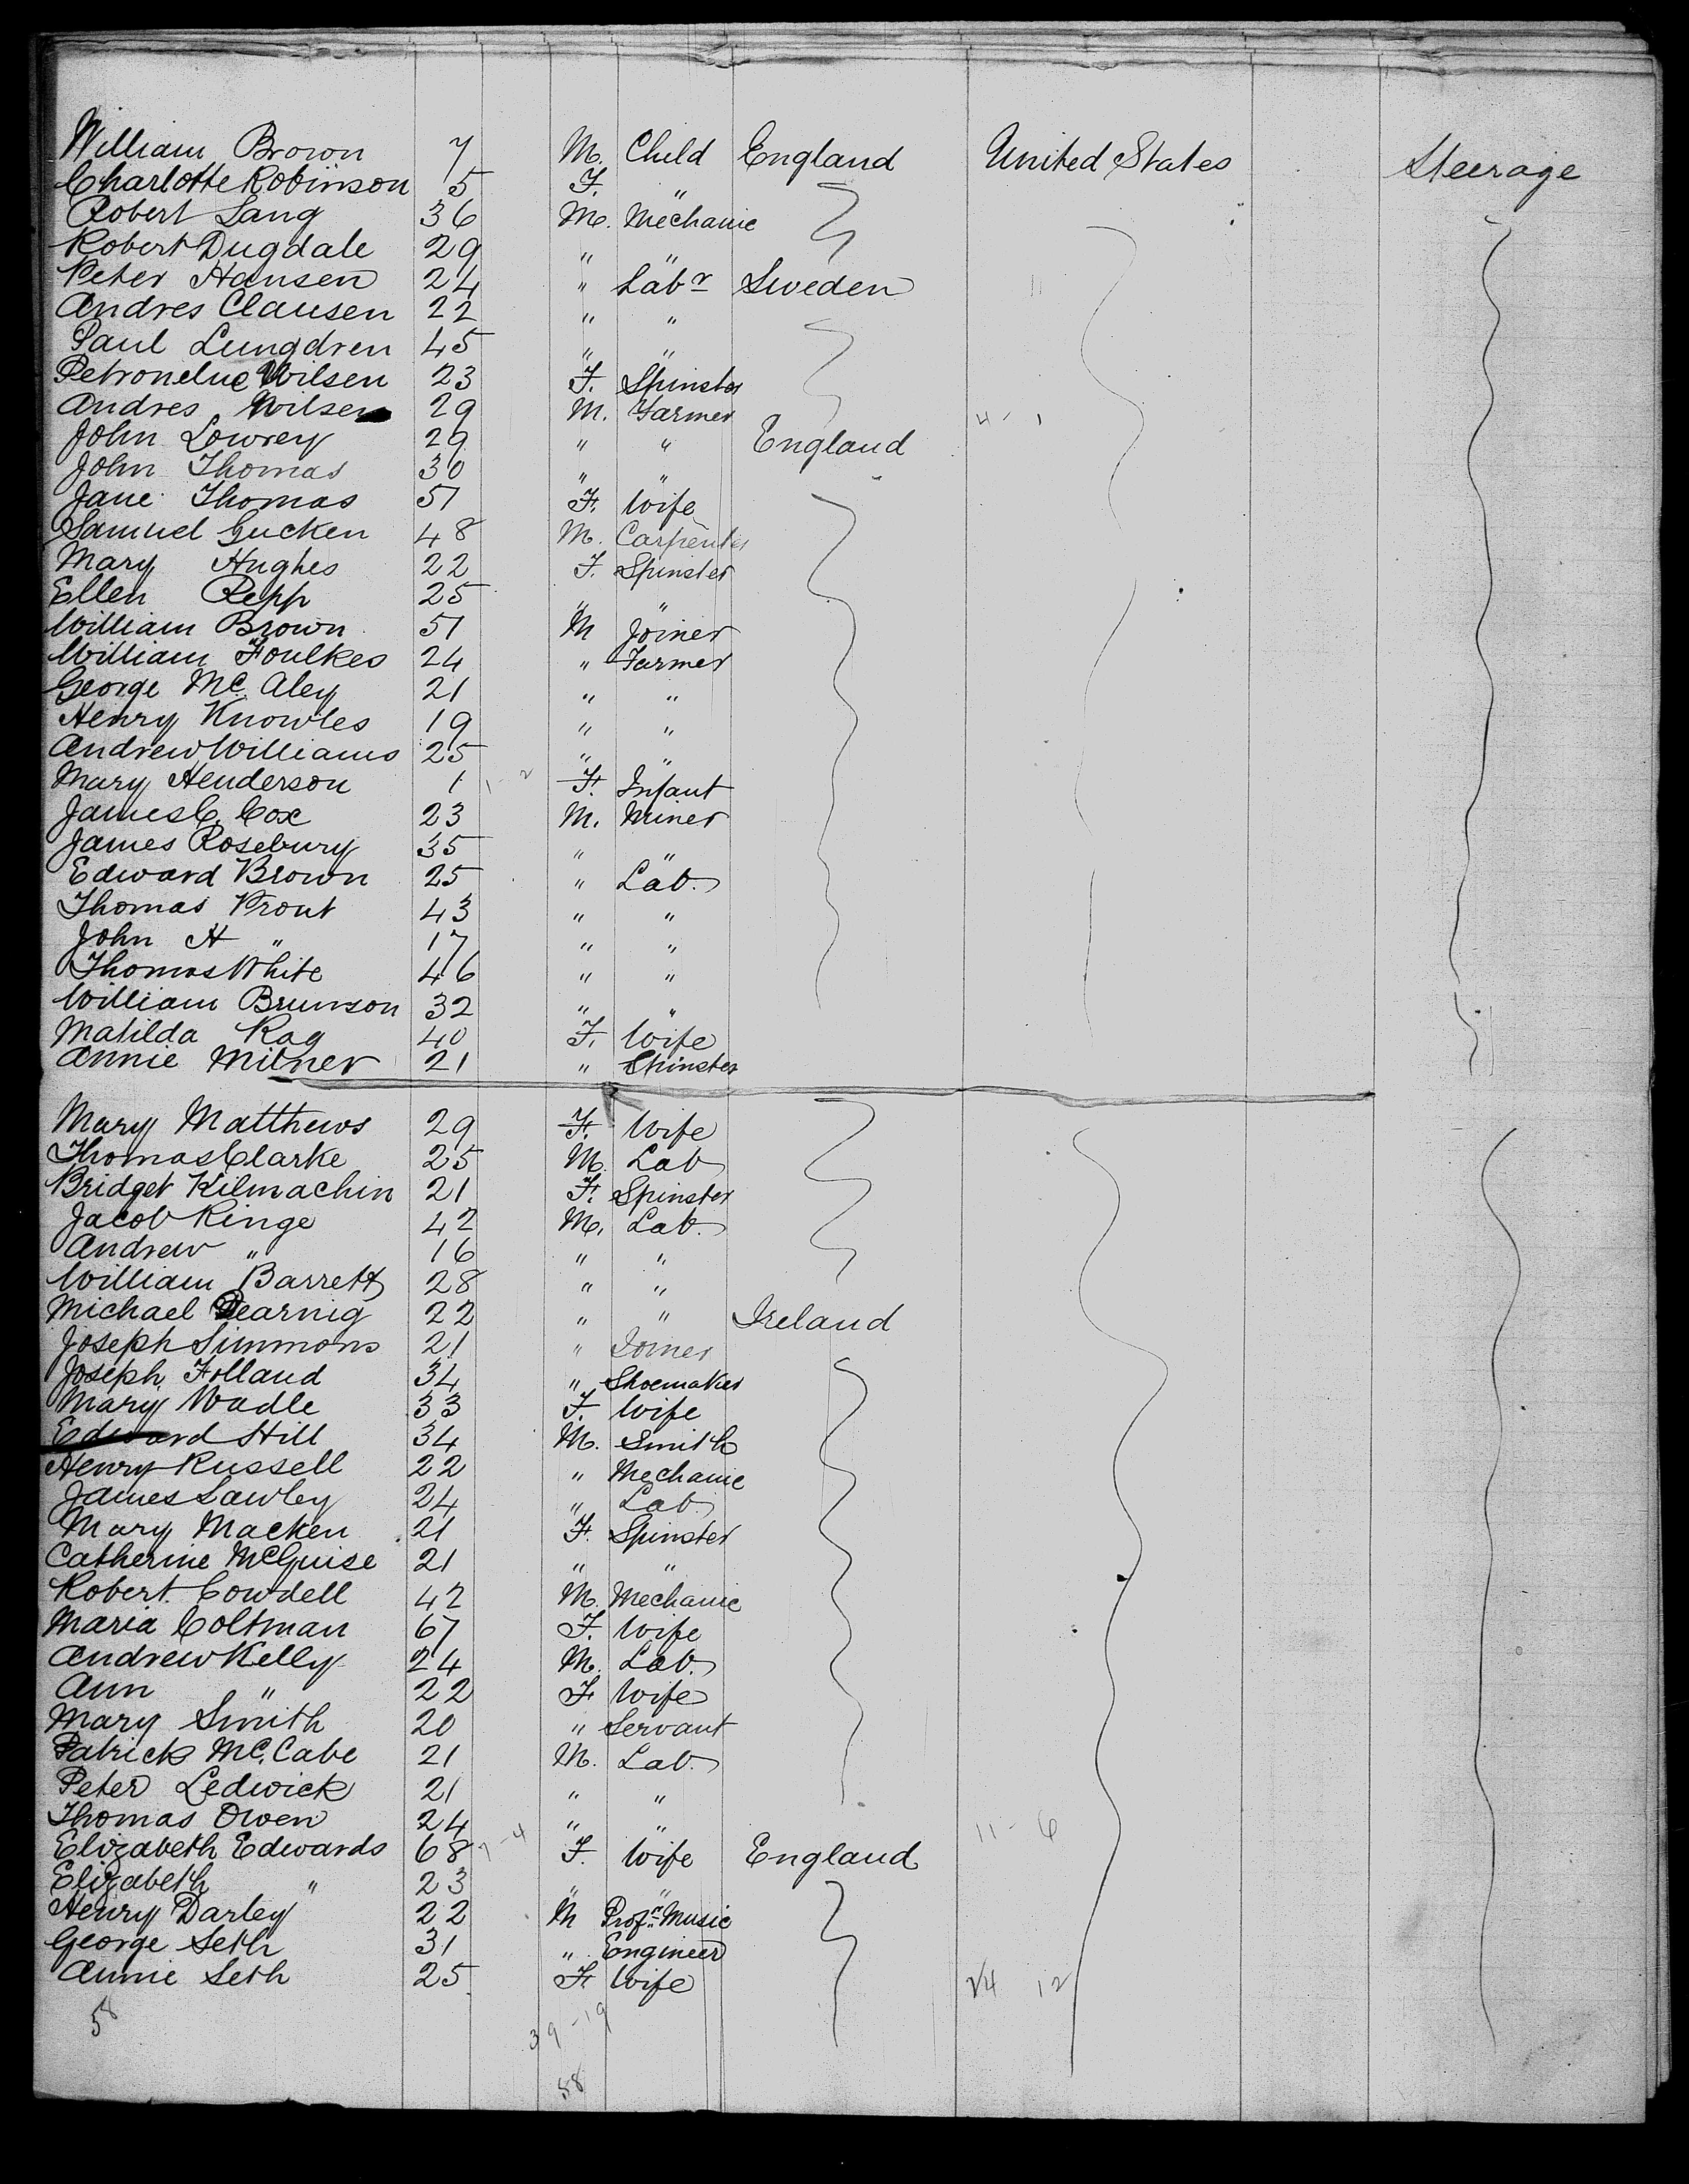 William Brown 7 M. Child England United States Steerage
Charlotte Robinson 5 F. "
Robert Lang 36 M. Mechanic
Robert Dugdale 29 " "
Peter Hansen 24 " Labr Sweden
Andres Clausen 22 " "
Paul Lungdren 45 " "
Wilsen 23 F. Spinster
Andres Nilsen 29 M. Farmer 4 - 1
John Lowrey 29 " " England
John Thomas 30 " "
Jane Thomas 51 F. Wife
Samuel Gucken 48 M. Carpenter
Mary Hughes 22 F. Spinster
Ellen Repp 25 " "
William Brown 51 M Joiner
William Foulkes 24 " Farmer
George Mc. Aley 21 " "
Henry Knowles 19 " "
Andrew Williams 25 " "
Mary Henderson 1 1 - 2 F. Infant
James C. Cox 23 M. Miner
James Rosebury 35 " "
Edward Brown 25 " Lab.
Thomas Prout 43 " "
John H " 17 " "
Thomas White 46 " "
William Brunson 32 " "
Matilda Kag 40 F. Wife
Annie Milner 21 " Spinster
Mary Matthews 29 F. Wife
Thomas Clarke 25 M. Lab
Bridget Kilmachin 21 F. Spinster
Jacob Ringe 42 M. Lab.
Andrew " 16 " "
William Barrett 28 " "
Michael Dearnig 22 " " Ireland
Joseph Simmons 21 " Joiner
Joseph Holland 34 " Shoemaker
Mary Wadle 33 F. Wife
Edward Hill 34 M. Smith
Henry Russell 22 " Mechanic
James Lawley 24 " Lab.
Mary Macken 21 F. Spinster
Catherine McGuise 21 " "
Robert Cowdell 42 M. Mechanic
Maria Coltman 67 F. Wife
Andrew Kelly 24 M. Lab.
Ann " 22 F Wife
Mary Smith 20 " Servant
Patrick Mc. Cabe 21 M. Lab.
Peter Ledwick 21 " "
Thomas Owen 24 " " 11 - 6
Elizabeth Edwards 68 7-4 F. Wife England
Elizabeth " 23 " "
Henry Darley 22 M Profr. Music
George Seth 31 " Engineer
Annie Seth 25 F. Wife 24 12
58 39-19
58